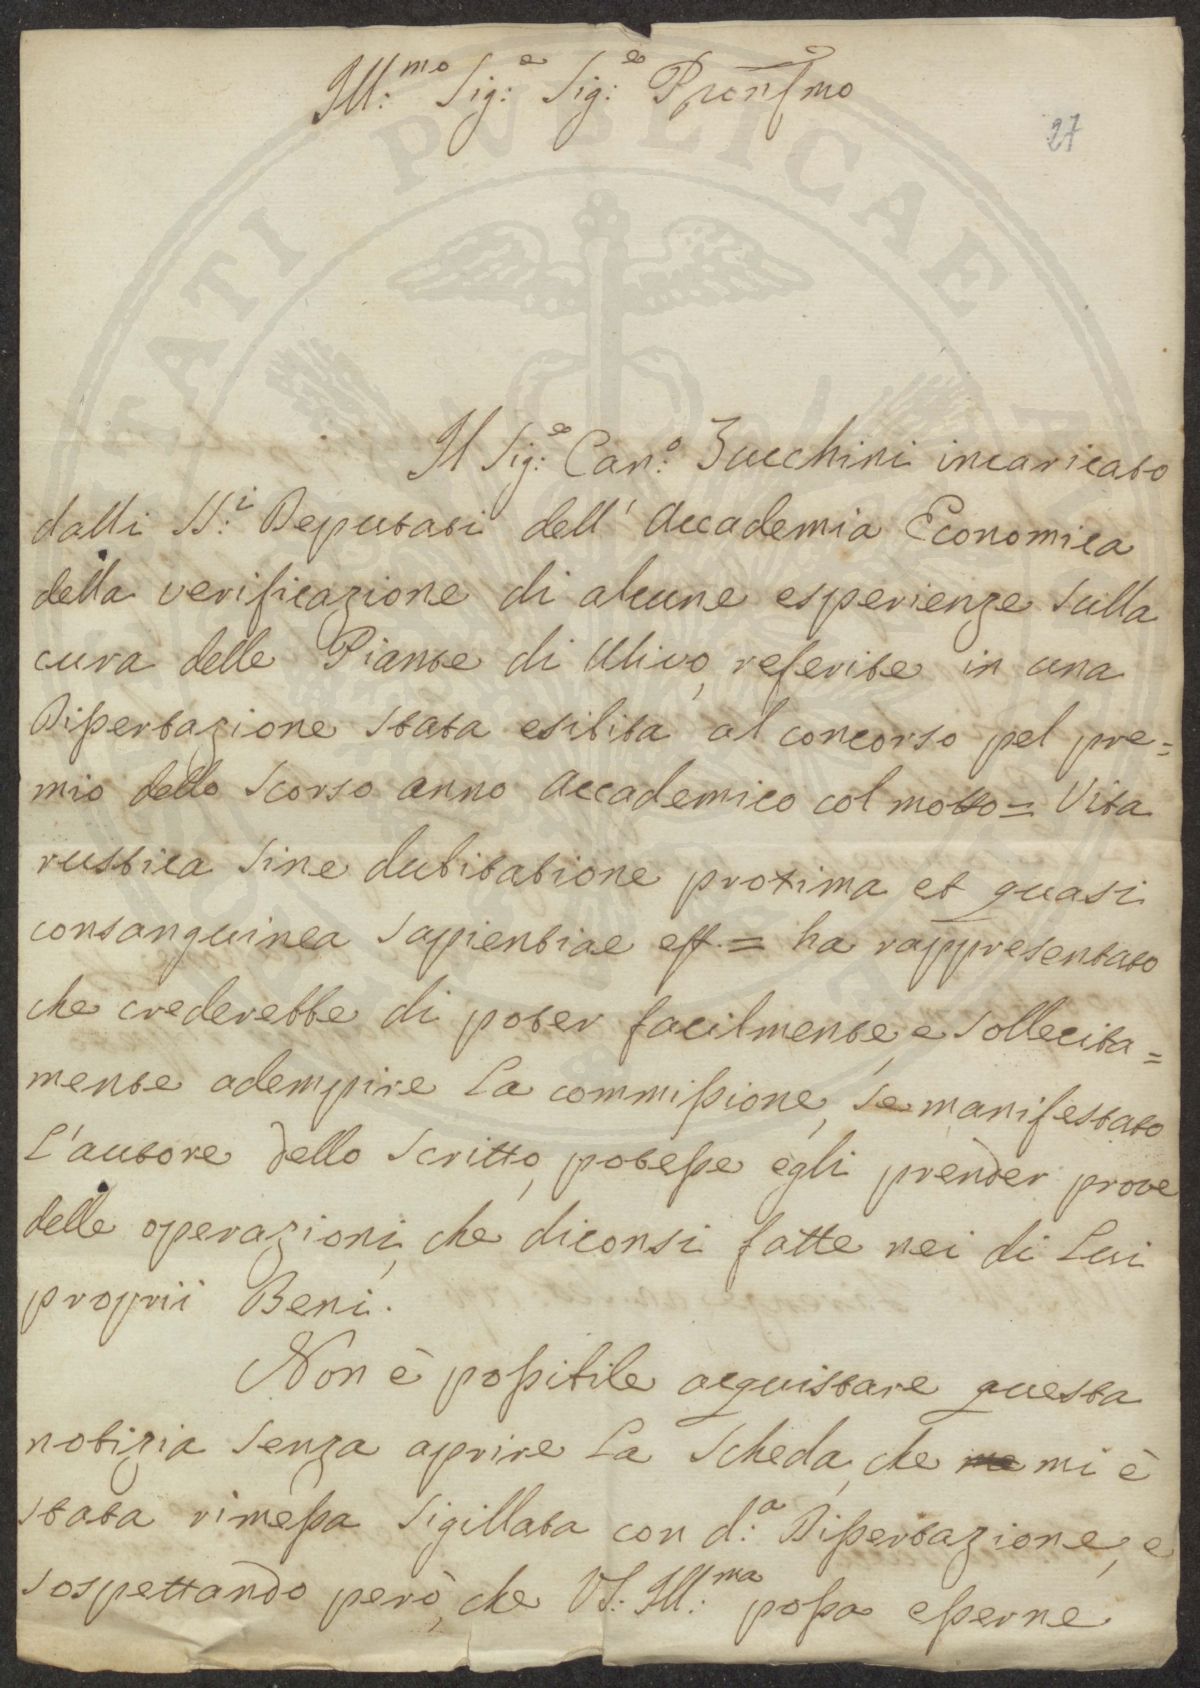 Ill:mo Sig:e Sig:e Pronſmo
27
Il Sig:e Can:o Zucchini incaricato
dalli SS:i Deputati dell' Accademia Economica
della verificazione di alcune esperienze sulla
cura delle Piante di Ulivo, referite in una
Dissertazione stata esibita al concorso pel pre=
mio dello scorso anno Accademico col motto = Vita
rustica sine dubitatione proxima et quasi
consanguinea sapientiae est = ha rappresentato
che crederebbe di poter facilmente, e sollecita=
mente adempire la commissione, se manifestato
l'autore dello scritto, potesse egli prender prove
delle operazioni, che diconsi fatte nei di Lui
proprii Beni.
Non è possibile acquistare questa
notizia senza aprire la scheda, che mi è
stata rimessa sigillata con d:a Dissertazione, e
sospettando però, che VS: Ill:ma possa esserne
PUBLICAE